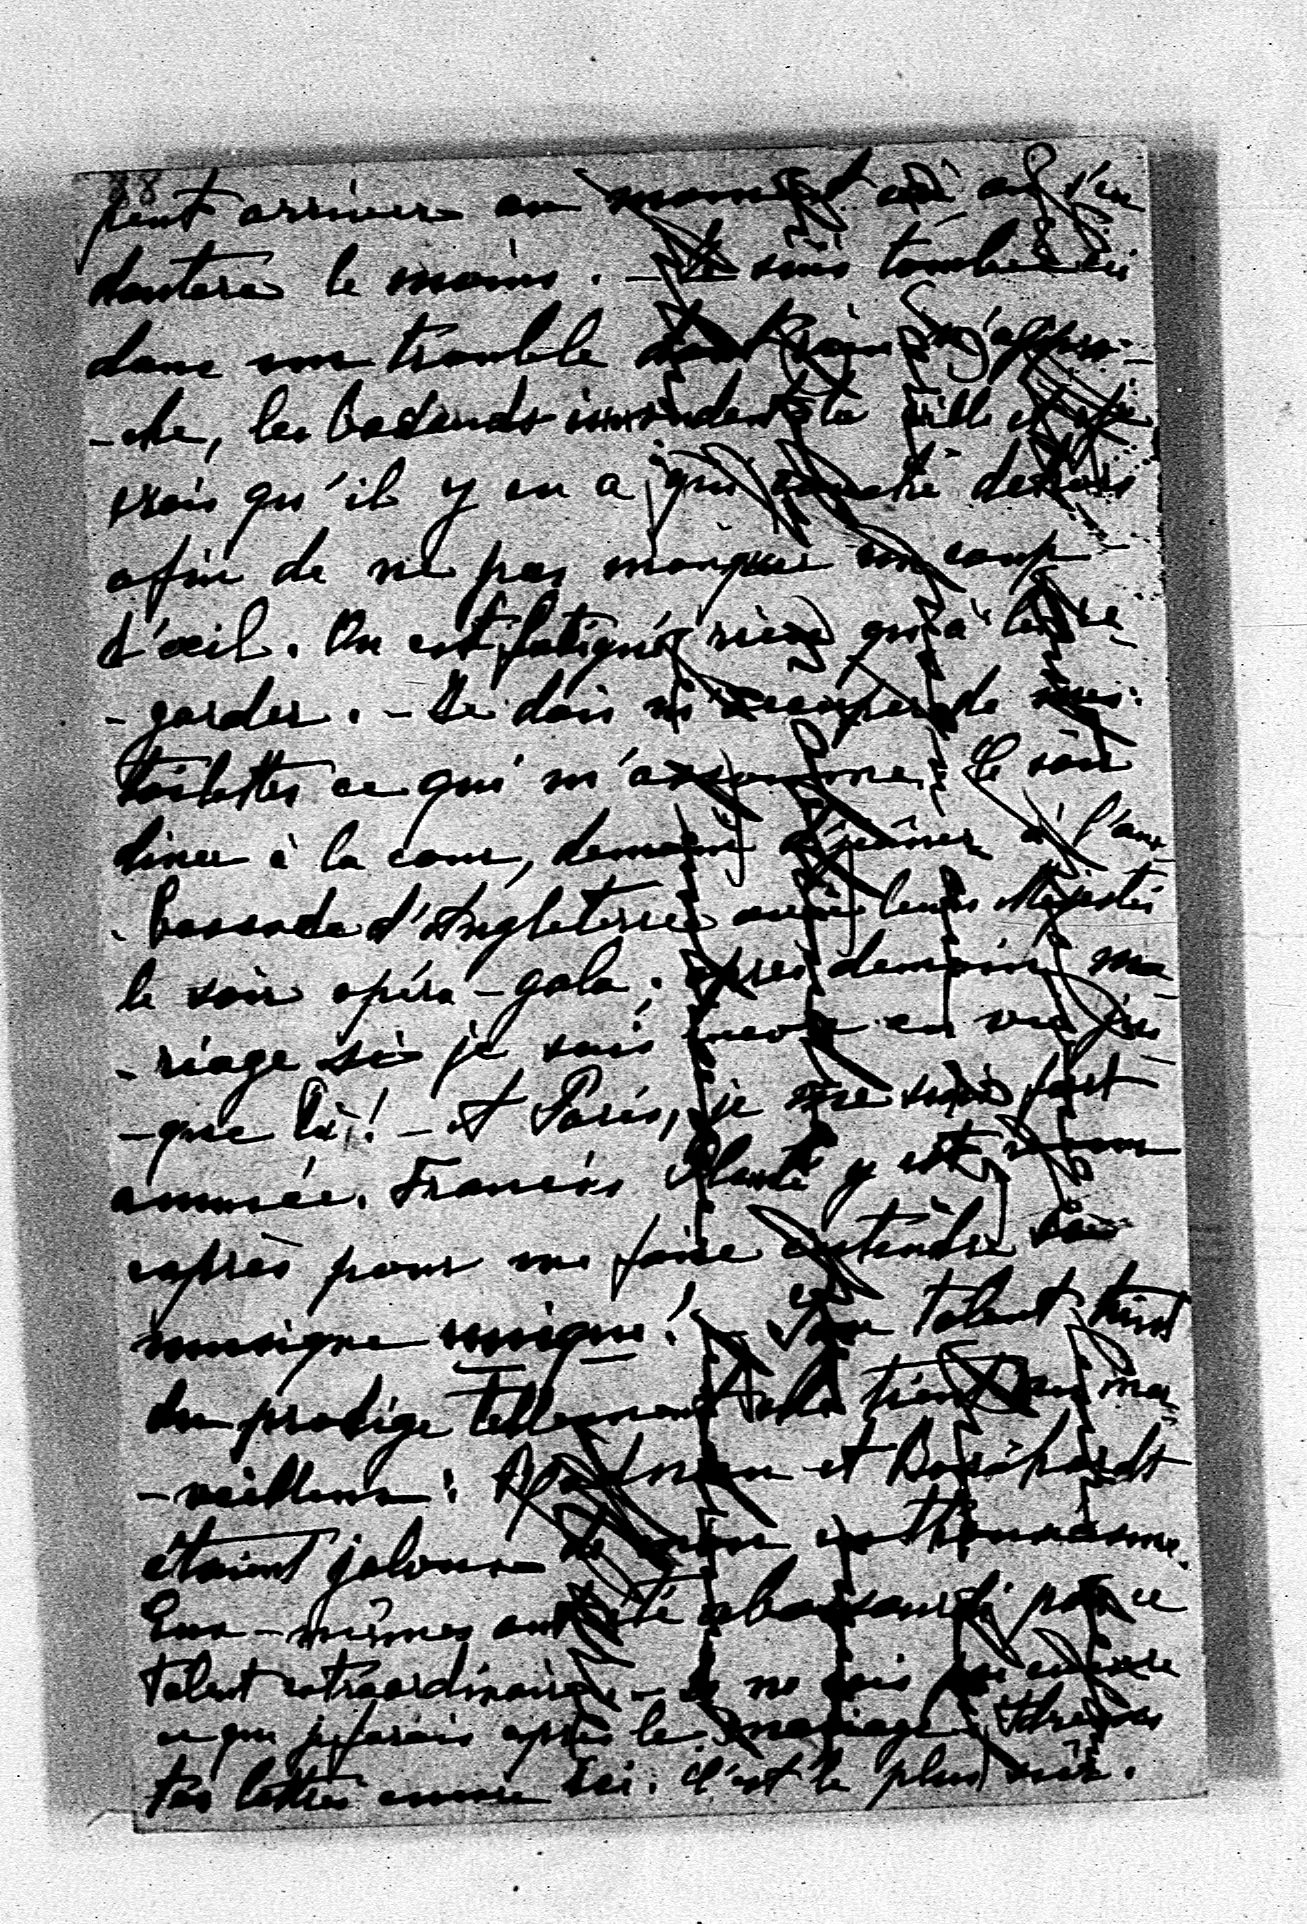 88
peut arriver au moment où on s'en
doutera le moins. — Je suis tombée ici
dans un trouble dont rien n'appro-
-che, les badauds inondent la ville et
vrai qu'il y en a qui couché dehors
afin de ne pas manquer un coup
d'œil. On est fatigué rien qu'à les re-
-garder. — Je dois m'occuper de mes
toilettes ce qui m'assomme. Ce soir
diner à la cour, demain déjeûner à l'am-
-bassade d'Angleterre avec leurs Majestés
le soir opéra-gala; après demain ma-
-riage si je suis encore en vie jus-
-que là! — A Paris, je me suis fort
amusée. Francis Planté y est venu
exprès pour me faire entendre sa
musique unique! Son talent tient
du prodige tellement cela tient du mer-
-veilleux: et
étaient jaloux de mon enthousiasme.
Eux-mêmes ont été abasourdi par ce
talent extraordinaire. — Je ne sais pas encore
ce que je ferais après le mariage. Adresses
tes lettres encore ici. C'est le plus sûr.